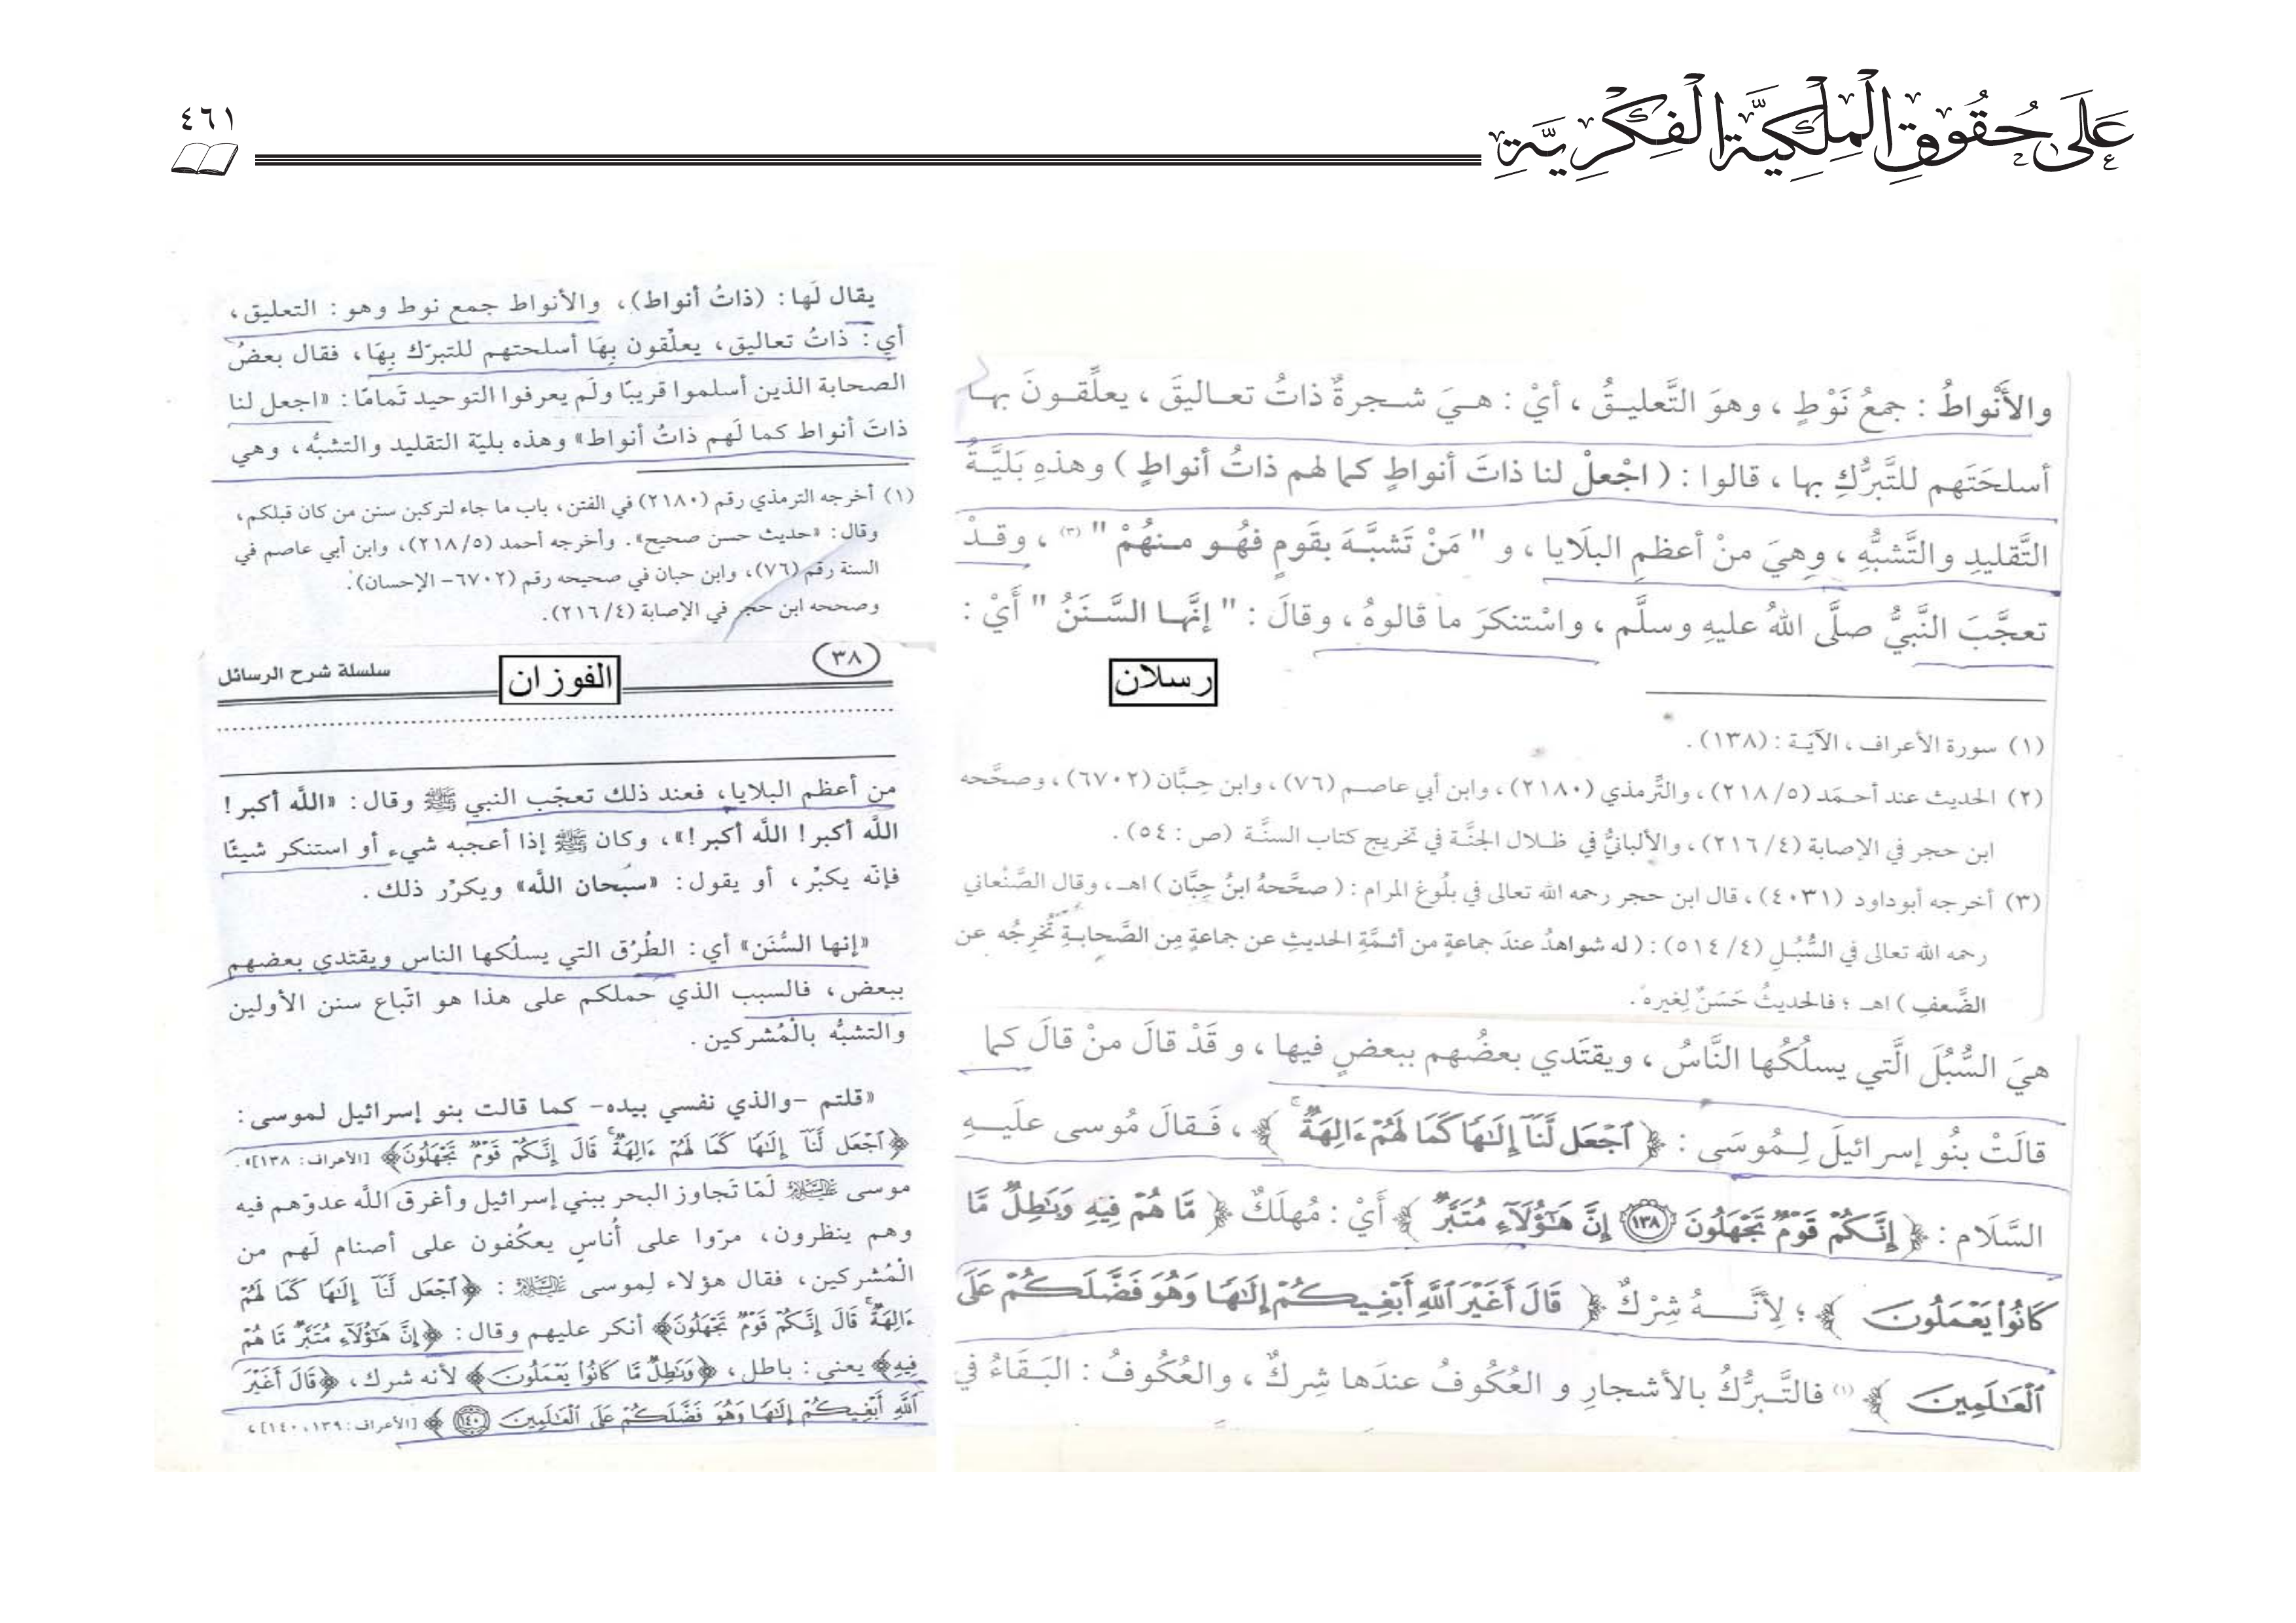 على حُقُوقِ الْمِلْكِيَّةِ الْفِكْرِيَّةِ
٤٦١
والأَنْواطُ : جمعُ نَوْطٍ ، وهوَ التَّعليـقُ ، أيْ : هـيَ شـجرةٌ ذاتُ تعـاليقَ ، يعلِّقـونَ بهـا
أسلحَتَهم للتَّبرُّكِ بها ، قالوا : ( اجْعلْ لنا ذاتَ أنواطٍ كما لهم ذاتُ أنواطٍ ) وهذهِ بَليَّـةُ
التَّقليدِ والتَّشبُّهِ ، وهِيَ منْ أعظمِ البلَايا ، و " مَنْ تَشبَّـهَ بقَومٍ فهُـو مـنهُمْ " (٣) ، وقـدْ
تعجَّبَ النَّبيُّ صلَّى اللهُ عليهِ وسلَّم ، واسْتنكرَ ما قالوهُ ، وقالَ : " إنَّهـا السَّـنَنُ " أَيْ :
رسلان
(١) سورة الأعراف ، الآيَـة : (١٣٨) .
(٢) الحديث عند أحـمَد (٢١٨/٥) ، والتِّرمذي (٢١٨٠) ، وابن أبي عاصـم (٧٦) ، وابن حِبَّان (٦٧٠٢) ، وصحَّحه
ابن حجر في الإصابة (٢١٦/٤) ، والألبانيُّ في ظـلال الجنَّـة في تخريج كتاب السنَّـة (ص : ٥٤) .
(٣) أخرجه أبوداود (٤٠٣١) ، قال ابن حجر رحمه الله تعالى في بلُوغ المرام : ( صحَّحهُ ابنُ حِبَّان ) اهـ ، وقال الصَّنْعاني
رحمه الله تعالى في السُّبُـلِ (٥١٤/٤) : ( له شواهدُ عندَ جماعةٍ من أئـمَّةِ الحديثِ عن جماعةٍ مِن الصَّحابـةِ تُخرِجُه عن
الضَّعفِ ) اهـ ؛ فالحديثُ حَسَنٌ لِغيرهِ .
هيَ السُّبُلَ الَّتي يسلُكُها النَّاسُ ، ويقتَدي بعضُهم ببعضٍ فيها ، و قَدْ قالَ منْ قالَ كما
قالَتْ بنُو إسرائيلَ لِـمُوسَى : ﴿ ٱجْعَل لَّنَآ إِلَـٰهًا كَمَا لَهُمْ ءَالِهَةٌ ﴾ ، فَـقالَ مُوسى علَيـهِ
السَّلَام : ﴿ إِنَّكُمْ قَوْمٌ تَجْهَلُونَ ١٣٨ إِنَّ هَـٰٓؤُلَآءِ مُتَبَّرٌ ﴾ أَيْ : مُهلَكٌ ﴿ مَّا هُمْ فِيهِ وَبَـٰطِلٌ مَّا
كَانُوا۟ يَعْمَلُونَ ﴾ ؛ لِأنَّـــهُ شِرْكٌ ﴿ قَالَ أَغَيْرَ ٱللَّهِ أَبْغِيكُمْ إِلَـٰهًا وَهُوَ فَضَّلَكُمْ عَلَى
ٱلْعَـٰلَمِينَ ﴾ (١) فالتَّـبرُّكُ بالأشجارِ و العُكُوفُ عندَها شِركٌ ، والعُكُوفُ : البَـقَاءُ في
يقال لَها : (ذاتُ أنواط)، والأنواط جمع نوط وهو : التعليق،
أي : ذاتُ تعاليق، يعلِّقون بِهَا أسلحتهم للتبرّك بِهَا، فقال بعضُ
الصحابة الذين أسلموا قريبًا ولَم يعرفوا التوحيد تَمامًا : «اجعل لنا
ذاتَ أنواط كما لَهم ذاتُ أنواط» وهذه بليّة التقليد والتشبُّه، وهي
(١) أخرجه الترمذي رقم (٢١٨٠) في الفتن، باب ما جاء لتركبن سنن من كان قبلكم،
وقال : «حديث حسن صحيح». وأخرجه أحمد (٢١٨/٥)، وابن أبي عاصم في
السنة رقم (٧٦)، وابن حبان في صحيحه رقم (٦٧٠٢- الإحسان).
وصححه ابن حجر في الإصابة (٢١٦/٤).
٣٨
الفوزان
سلسلة شرح الرسائل
من أعظم البلايا، فعند ذلك تعجّب النبي ﷺ وقال : «اللَّه أكبر !
اللَّه أكبر ! اللَّه أكبر !»، وكان ﷺ إذا أعجبه شيء أو استنكر شيئًا
فإنّه يكبّر، أو يقول : «سبحان اللَّه» ويكرّر ذلك .
«إنها السُّنَن» أي : الطُرُق التي يسلُكها الناس ويقتدي بعضهم
ببعض، فالسبب الذي حَملكم على هذا هو اتّباع سنن الأولين
والتشبُّه بالْمُشركين .
«قلتم -والذي نفسي بيده- كما قالت بنو إسرائيل لموسى :
﴿ٱجْعَل لَّنَآ إِلَـٰهًا كَمَا لَهُمْ ءَالِهَةٌ قَالَ إِنَّكُمْ قَوْمٌ تَجْهَلُونَ﴾ [الأعراف: ١٣٨]».
موسى عليه السلام لَمّا تَجاوز البحر ببني إسرائيل وأغرق اللَّه عدوّهم فيه
وهم ينظرون، مرّوا على أُناسٍ يعكُفون على أصنام لَهم من
الْمُشركين، فقال هؤلاء لِموسى عليه السلام : ﴿ٱجْعَل لَّنَآ إِلَـٰهًا كَمَا لَهُمْ
ءَالِهَةٌ قَالَ إِنَّكُمْ قَوْمٌ تَجْهَلُونَ﴾ أنكر عليهم وقال : ﴿إِنَّ هَـٰٓؤُلَآءِ مُتَبَّرٌ مَّا هُمْ
فِيهِ﴾ يعني : باطل، ﴿وَبَـٰطِلٌ مَّا كَانُوا۟ يَعْمَلُونَ﴾ لأنه شرك، ﴿قَالَ أَغَيْرَ
ٱللَّهِ أَبْغِيكُمْ إِلَـٰهًا وَهُوَ فَضَّلَكُمْ عَلَى ٱلْعَـٰلَمِينَ ١٤٠﴾ [الأعراف: ١٣٩، ١٤٠]،